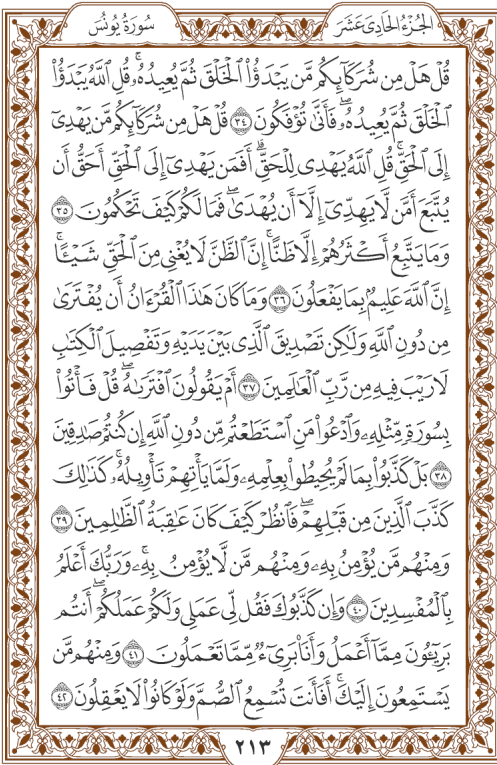 الجُزْءُ الحَادِي عَشَرَ
سُورَةُ يُونُسَ
قُلْ هَلْ مِن شُرَكَآئِكُم مَّن يَبْدَؤُا۟ ٱلْخَلْقَ ثُمَّ يُعِيدُهُۥ ۚ قُلِ ٱللَّهُ يَبْدَؤُا۟
ٱلْخَلْقَ ثُمَّ يُعِيدُهُۥ ۖ فَأَنَّىٰ تُؤْفَكُونَ ٣٤ قُلْ هَلْ مِن شُرَكَآئِكُم مَّن يَهْدِىٓ
إِلَى ٱلْحَقِّ ۚ قُلِ ٱللَّهُ يَهْدِى لِلْحَقِّ ۗ أَفَمَن يَهْدِىٓ إِلَى ٱلْحَقِّ أَحَقُّ أَن
يُتَّبَعَ أَمَّن لَّا يَهِدِّىٓ إِلَّآ أَن يُهْدَىٰ ۖ فَمَا لَكُمْ كَيْفَ تَحْكُمُونَ ٣٥
وَمَا يَتَّبِعُ أَكْثَرُهُمْ إِلَّا ظَنًّا ۚ إِنَّ ٱلظَّنَّ لَا يُغْنِى مِنَ ٱلْحَقِّ شَيْـًٔا ۚ
إِنَّ ٱللَّهَ عَلِيمٌۢ بِمَا يَفْعَلُونَ ٣٦ وَمَا كَانَ هَـٰذَا ٱلْقُرْءَانُ أَن يُفْتَرَىٰ
مِن دُونِ ٱللَّهِ وَلَـٰكِن تَصْدِيقَ ٱلَّذِى بَيْنَ يَدَيْهِ وَتَفْصِيلَ ٱلْكِتَـٰبِ
لَا رَيْبَ فِيهِ مِن رَّبِّ ٱلْعَـٰلَمِينَ ٣٧ أَمْ يَقُولُونَ ٱفْتَرَىٰهُ ۖ قُلْ فَأْتُوا۟
بِسُورَةٍ مِّثْلِهِۦ وَٱدْعُوا۟ مَنِ ٱسْتَطَعْتُم مِّن دُونِ ٱللَّهِ إِن كُنتُمْ صَـٰدِقِينَ
٣٨ بَلْ كَذَّبُوا۟ بِمَا لَمْ يُحِيطُوا۟ بِعِلْمِهِۦ وَلَمَّا يَأْتِهِمْ تَأْوِيلُهُۥ ۚ كَذَٰلِكَ
كَذَّبَ ٱلَّذِينَ مِن قَبْلِهِمْ ۖ فَٱنظُرْ كَيْفَ كَانَ عَـٰقِبَةُ ٱلظَّـٰلِمِينَ ٣٩
وَمِنْهُم مَّن يُؤْمِنُ بِهِۦ وَمِنْهُم مَّن لَّا يُؤْمِنُ بِهِۦ ۚ وَرَبُّكَ أَعْلَمُ
بِٱلْمُفْسِدِينَ ٤٠ وَإِن كَذَّبُوكَ فَقُل لِّى عَمَلِى وَلَكُمْ عَمَلُكُمْ ۖ أَنتُم
بَرِيٓـُٔونَ مِمَّآ أَعْمَلُ وَأَنَا۠ بَرِىٓءٌ مِّمَّا تَعْمَلُونَ ٤١ وَمِنْهُم مَّن
يَسْتَمِعُونَ إِلَيْكَ ۚ أَفَأَنتَ تُسْمِعُ ٱلصُّمَّ وَلَوْ كَانُوا۟ لَا يَعْقِلُونَ ٤٢
٢١٣